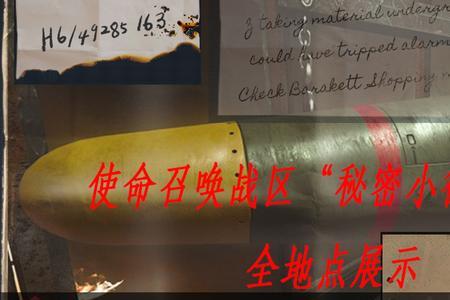 H6/49285 163
z taking material undergr
could have tripped alarm
Check Barakett Shopping
使命召唤战区“秘密小
全地点展示